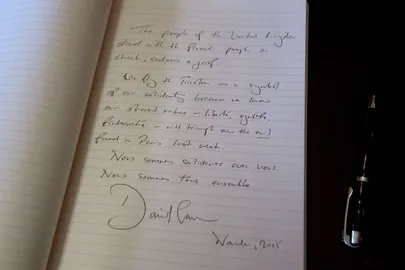 The people of the United Kingdom
stand with the French people in
shock, sadness & grief
We fly the Tricolor as a symbol
of our solidarity because we know
our shared values - liberté, egalité,
fraternité - will triumph over the evil
faced in Paris last week.
Nous sommes solidaires avec vous
Nous sommes tous ensemble
David
November, 2015